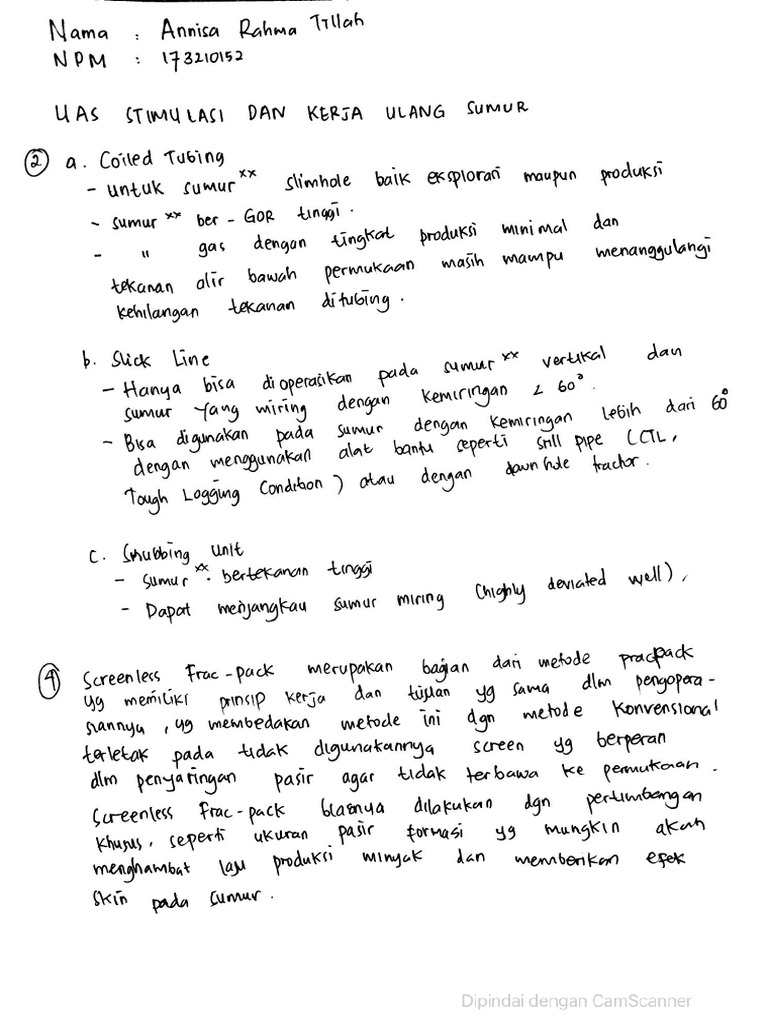 Nama : Annisa Rahma Tillah
NPM : 173210152
UAS STIMULASI DAN KERJA ULANG SUMUR
② a. Coiled Tubing
- untuk sumur xx slimhole baik eksplorasi maupun produksi
- sumur xx ber - GOR tinggi.
- " gas dengan tingkat produksi minimal dan
tekanan alir bawah permukaan masih mampu menanggulangi
kehilangan tekanan ditubing.
b. Slick Line
- Hanya bisa dioperasikan pada sumur xx vertikal dan
sumur yang miring dengan kemiringan < 60°.
- Bisa digunakan pada sumur dengan kemiringan lebih dari 60°
dengan menggunakan alat bantu seperti drill pipe (CTL,
Tough Logging Condition) atau dengan downhole tractor.
c. Snubbing unit
- Sumur xx bertekanan tinggi
- Dapat menjangkau sumur miring (highly deviated well),
④ Screenless Frac-pack merupakan bagian dari metode pracpack
yg memiliki prinsip kerja dan tujuan yg sama dlm pengopera-
siannya, yg membedakan metode ini dgn metode konvensional
terletak pada tidak digunakannya screen yg berperan
dlm penyaringan pasir agar tidak terbawa ke permukaan.
Screenless Frac-pack biasnya dilakukan dgn pertimbangan
khusus, seperti ukuran pasir formasi yg mungkin akan
menghambat laju produksi minyak dan memberikan efek
skin pada sumur.
Dipindai dengan CamScanner